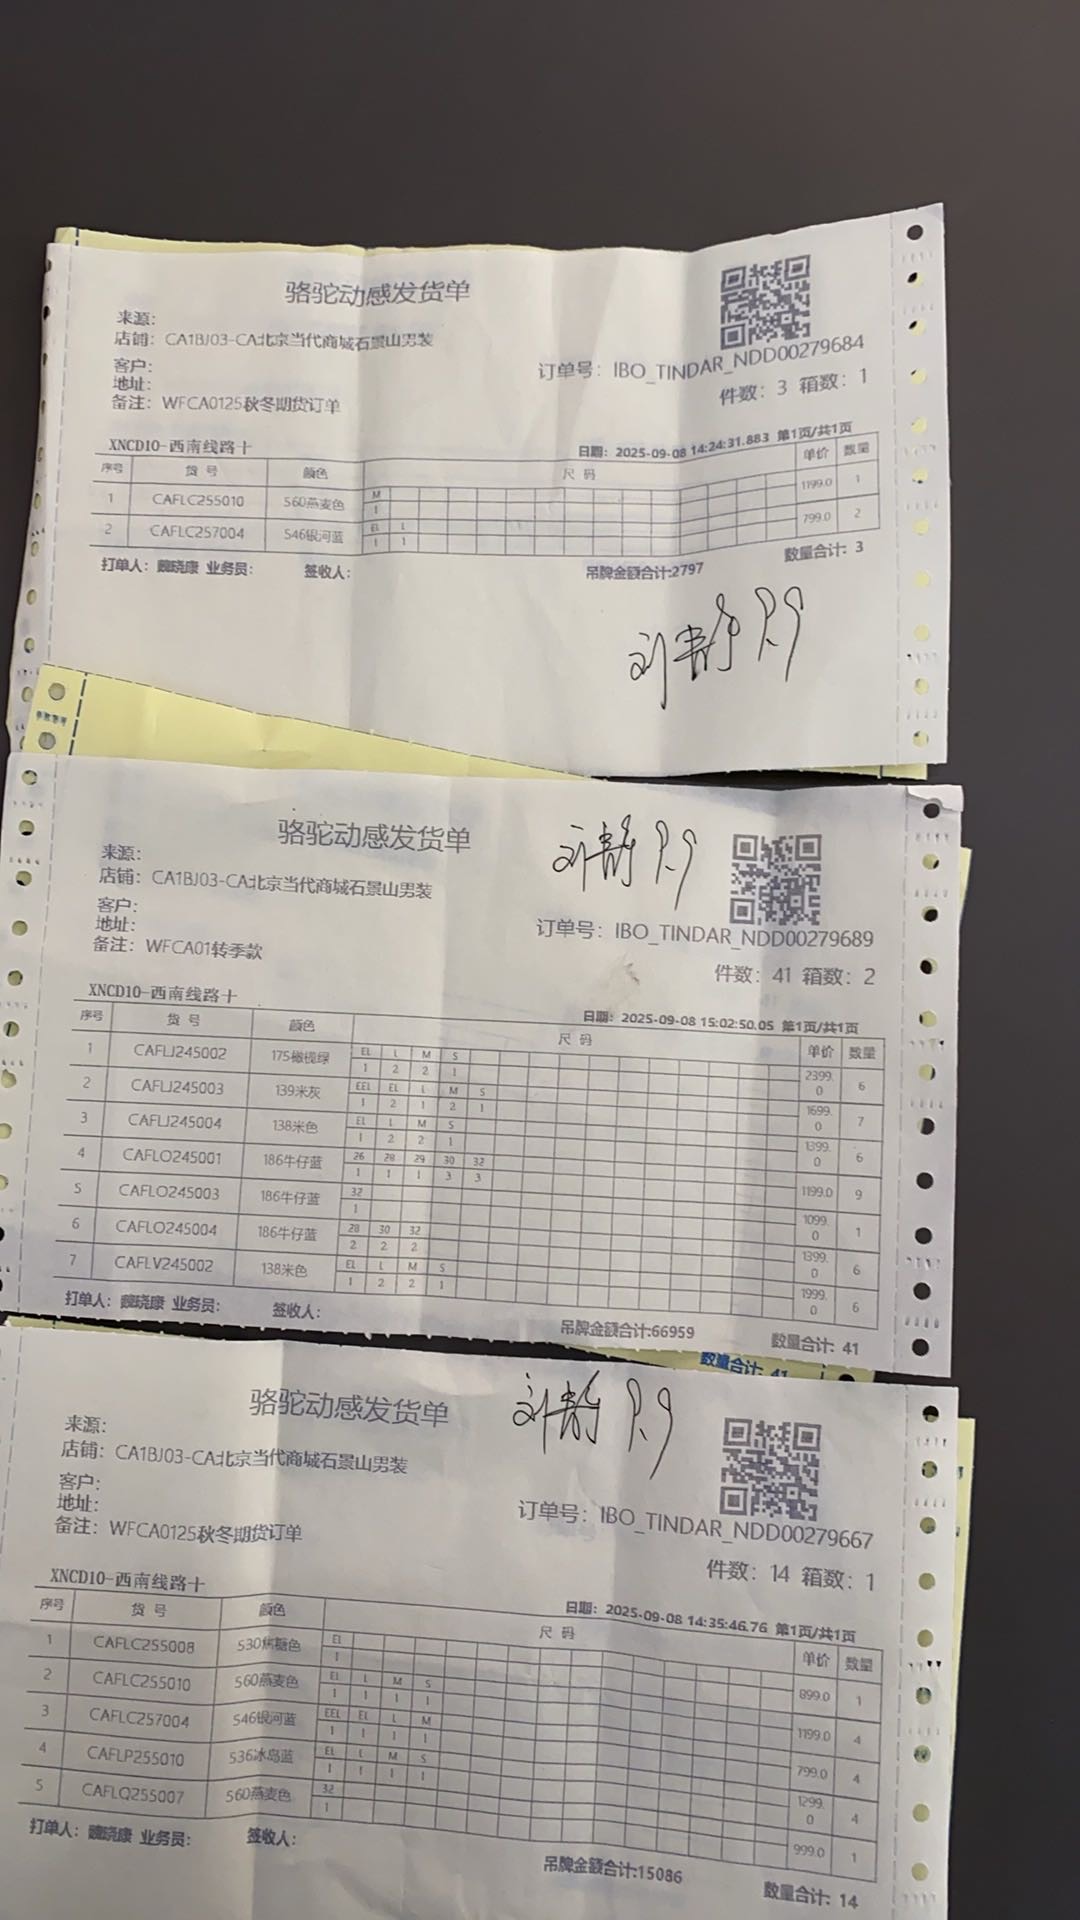 骆驼动感发货单
来源:
店铺: CA1BJ03-CA北京当代商城石景山男装
客户:
地址:
备注: WFCA0125秋冬期货订单
订单号: IBO_TINDAR_NDD00279684
件数: 3 箱数: 1
XNCD10-西南线路十
日期: 2025-09-08 14:24:31.883 第1页/共1页
序号 货号 颜色 尺码 单价 数量
M
1 CAFLC255010 560燕麦色 1 1199.0 1
EL L
2 CAFLC257004 546银河蓝 1 1 799.0 2
打单人: 魏晓康 业务员: 签收人: 吊牌金额合计:2797 数量合计: 3
刘静 9.9
骆驼动感发货单
刘静 9.9
来源:
店铺: CA1BJ03-CA北京当代商城石景山男装
客户:
地址:
备注: WFCA01转季款
订单号: IBO_TINDAR_NDD00279689
件数: 41 箱数: 2
XNCD10-西南线路十
日期: 2025-09-08 15:02:50.05 第1页/共1页
序号 货号 颜色 尺码 单价 数量
EL L M S
1 CAFLJ245002 175橄榄绿 1 2 2 1 2399.0 6
EEL EL L M S
2 CAFLJ245003 139米灰 1 2 1 2 1 1699.0 7
EL L M S
3 CAFLJ245004 138米色 1 2 2 1 1399.0 6
26 28 29 30 32
4 CAFLO245001 186牛仔蓝 1 1 1 3 3 1199.0 9
32
5 CAFLO245003 186牛仔蓝 1 1099.0 1
28 30 32
6 CAFLO245004 186牛仔蓝 2 2 2 1399.0 6
EL L M S
7 CAFLV245002 138米色 1 2 2 1 1999.0 6
打单人: 魏晓康 业务员: 签收人: 吊牌金额合计:66959 数量合计: 41
数量合计: 41
骆驼动感发货单
刘静 9.9
来源:
店铺: CA1BJ03-CA北京当代商城石景山男装
客户:
地址:
备注: WFCA0125秋冬期货订单
订单号: IBO_TINDAR_NDD00279667
件数: 14 箱数: 1
XNCD10-西南线路十
日期: 2025-09-08 14:35:46.76 第1页/共1页
序号 货号 颜色 尺码 单价 数量
EL
1 CAFLC255008 530焦糖色 1 899.0 1
EL L M S
2 CAFLC255010 560燕麦色 1 1 1 1 1199.0 4
EEL EL L M
3 CAFLC257004 546银河蓝 1 1 1 1 799.0 4
EL L M S
4 CAFLP255010 536冰岛蓝 1 1 1 1 1299.0 4
32
5 CAFLQ255007 560燕麦色 1 999.0 1
打单人: 魏晓康 业务员: 签收人: 吊牌金额合计:15086 数量合计: 14